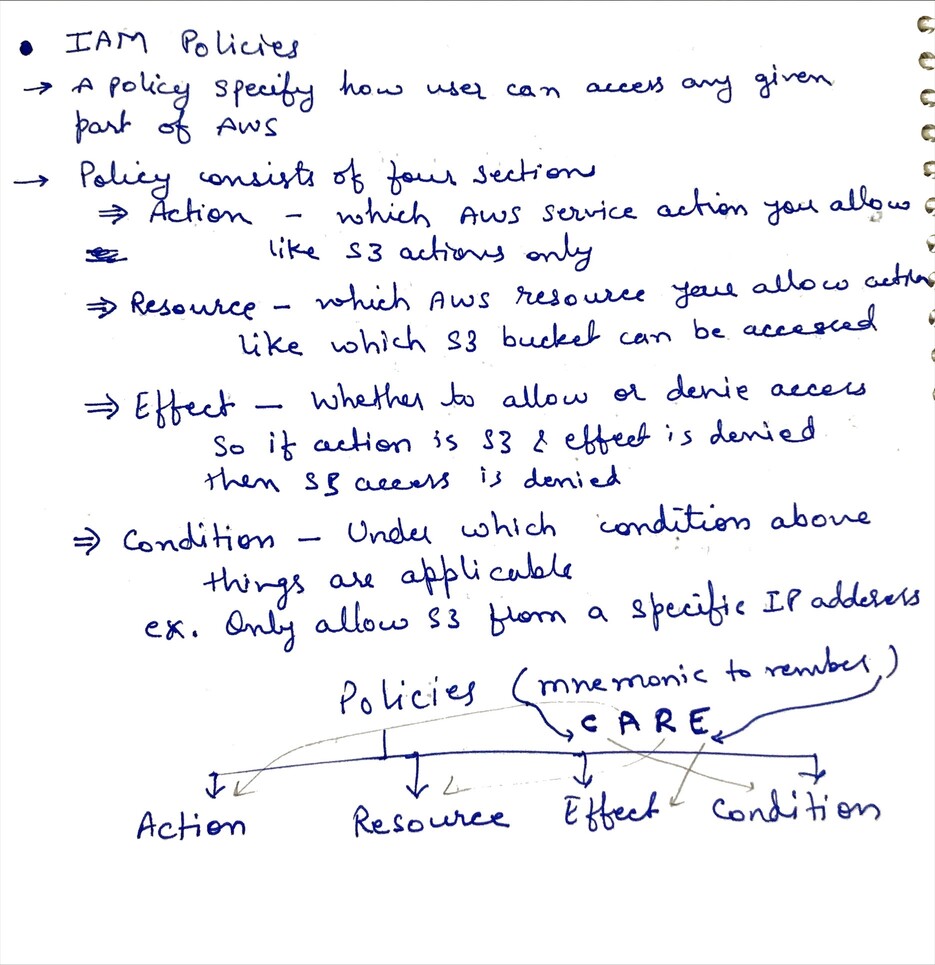 • IAM Policies
→ A policy specify how user can access any given
part of AWS
→ Policy consists of four section
⇒ Action - which AWS service action you allow
like S3 actions only
⇒ Resource - which AWS resource you allow action
like which S3 bucket can be accesced
⇒ Effect - Whether to allow or denie access
So if action is S3 & effect is denied
then S3 access is denied
⇒ Condition - Under which condition above
things are applicable
ex. Only allow S3 from a specific IP address
Policies (mnemonic to rember)
C A R E
Action Resource Effect Condition